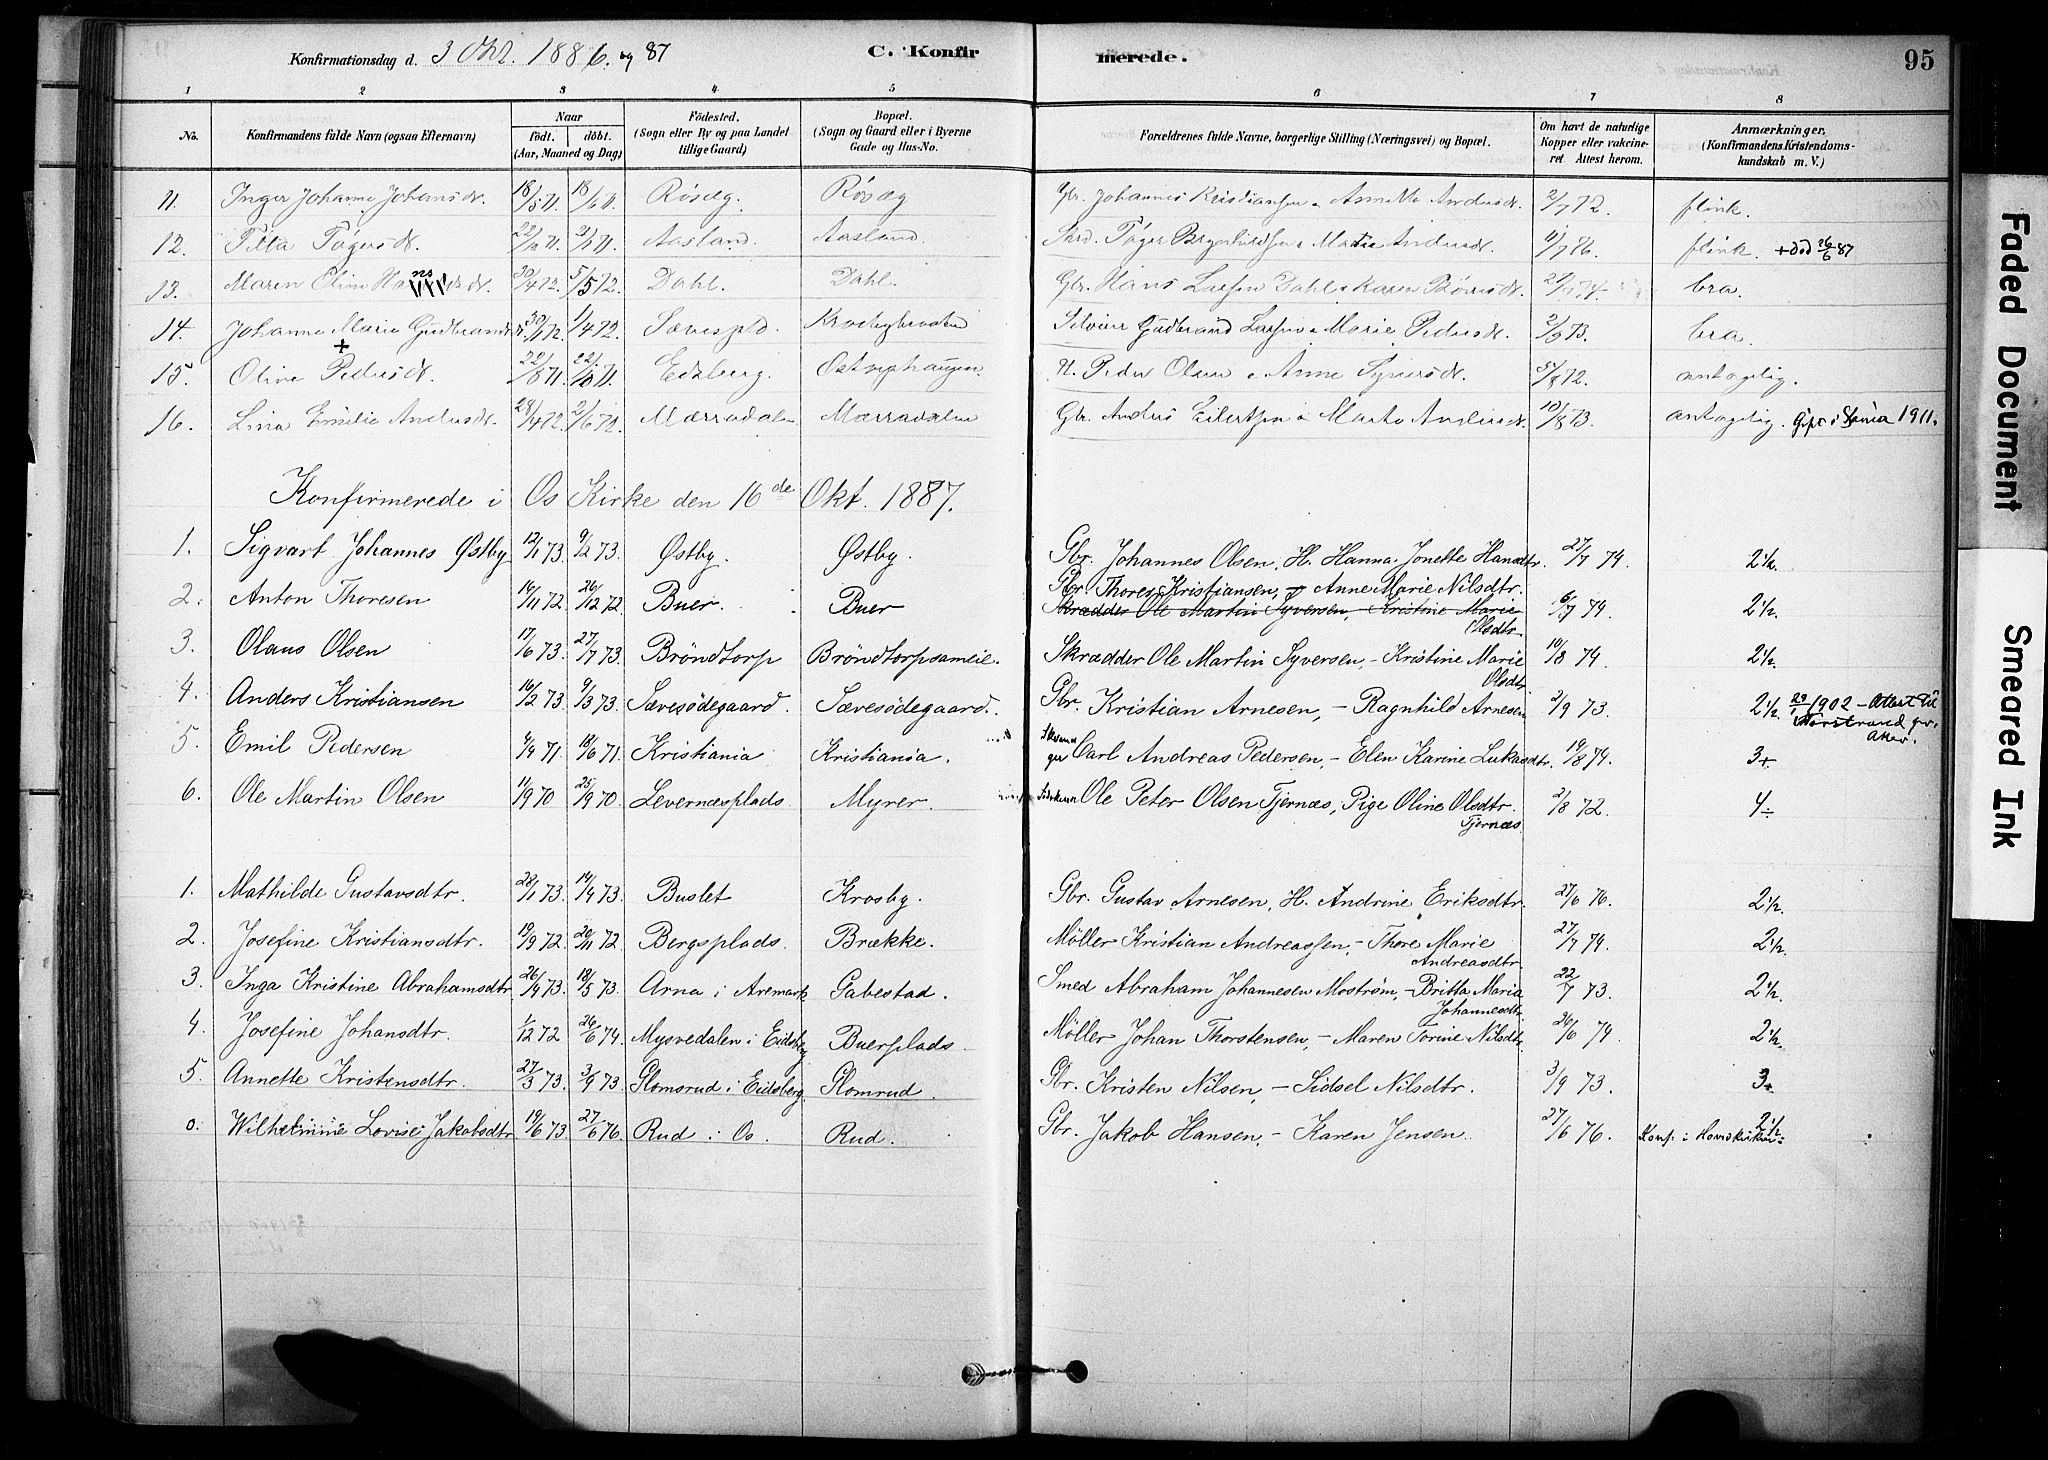 Konfirmationsdag d. 3 Okt. 1886. og 87 C. Konfir merede. 95
1 2 3 4 5 6 7 8
No. Konfirmandens fulde Navn (ogsaa Efternavn) Naar født. døbt. (Aar, Maaned og Dag) Fødested. (Sogn eller By og paa Landet tillige Gaard) Bopæl. (Sogn og Gaard eller i Byerne Gade og Hus-No. Forældrenes fulde Navne, borgerlige Stilling (Næringsvei) og Bopæl. Om havt de naturlige Kopper eller vakcineret. Attest herom. Anmærkninger, (Konfirmandens Kristendomskundskab m. V.)
11. Inger Johanne Johansdt. 18/5 71. 18/6 71. Røsæg. Røsæg Gbr. Johannes Kristiansen - Annette Andersdt. 2/7 72. flink.
12. Aasland. Aasland flink. + død 26/6 87
13. Maren Oline Hansdt. 30/4 72. 5/5 72. Dahl. Dahl. Gbr. Hans Larsen Dahl - Karen bra.
14. Johanne Marie Gudbrandsdt. 1/4 72. Sævespld. Gudbrand Larsen - Marie Pedersdt. 2/9 73. bra.
15. Olive + Pedersdt. 22/8 71. 22/10 71. Edsberg. H. Peder Olsen - Anne Syversdt. 5/8 72. antagelig.
16. Lina Emilie Andersdt. 28/4 72. 2/6 72. Mærradalen Mærradalen Gbr. Anders Eilertsen - Andersdt. 10/8 73. antagelig. Gift i 1911.
Konfirmerede i Os Kirke den 16de Okt. 1887.
1. Sigvart Johannes Østby 12/1 73. 9/2 73. Østby. Østby. Gbr. Johannes Olsen, H. Hanna Jonette Hansdtr. 27/7 74. 2 1/2.
2. Anton Thoresen 16/11 72. 26/12 72. Buer. Buer Gbr. Thores Kristiansen, Anne Marie Nilsdtr.
Skrædder Ole Martin Syversen, - Kristine Marie Olsdtr. 6/7 74. 2 1/2.
3. Olaus Olsen 17/6 73. 27/7 73. Brøndtorp Brøndtorpsameie. Skrædder Ole Martin Syversen, - Kristine Marie Olsdtr. 10/8 74. 2 1/2.
4. Anders Kristiansen 16/2 73. 9/3 73. Sævesødegaard. Sævesødegaard. Gbr. Kristian Arnesen, - Ragnhild Arnesen 2/9 73. 2 1/2. 29/1 1902 - Attest til Norstrand pr. Aker.
5. Emil Pedersen 4/4 71. 18/6 71. Kristiania Kristiania. Carl Andreas Pedersen, - Elen Karine Lukasdtr. 19/8 74. 3+
6. Ole Martin Olsen 11/9 70 25/9 70. Levernæsplads. Myrer. Ole Peter Olsen Tjernæs, Pige Oline Olsdtr. Tjernæs 2/8 72. 4÷
1. Mathilde Gustavsdtr. 28/1 73. 14/4 73. Buslet Krosby. Gbr. Gustav Arnesen, H. Andrine Eriksdtr. 27/6 76. 2 1/2.
2. Josefine Kristiansdtr. 19/9 72. 20/11 72 Bergsplads. Brække. Møller Kristian Andreassen, - Thore Marie Andreasdtr. 27/7 74. 2 1/2
3. Inga Kristine Abrahamsdtr 26/4 73. 18/5 73. Arna i Aremark Gabestad. Smed Abraham Johannesen Mostrøm, - Britta Maria Johannesdtr. 22/7 73. 2 1/2.
4. Josefine Johansdtr. 1/12 72 26/6 74. Mysvedalen i Eidsberg Buerplads. Møller Johan Thorstensen, - Maren Torine Nilsdtr. 26/6 74. 2 1/2.
5. Annette Kristensdtr. 27/3 73. 3/9 73. Glomsrud i Eidsberg Glomrud. Gbr. Kristen Nilsen, - Sidsel Nilsdtr. 3/9 73. 3+
0. Wilhelmine Lovise Jakobsdtr 19/6 73. 27/6 76. Rud i Os. Rud. Gbr. Jakob Hansen, - Karen Jensen. 27/6 76. 2 1/2 Konf. i Hovedkirken
Faded Document
Smeared Ink